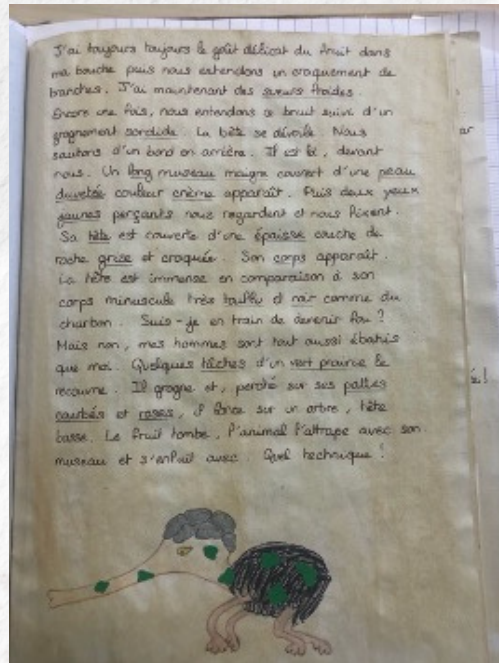 J'ai toujours toujours le goût délicat du fruit dans
ma bouche puis nous entendons un craquement de
branches. J'ai maintenant des sueurs froides.
Encore une fois, nous entendons ce bruit suivi d'un
grognement sordide. La bête se dévoile. Nous
sautons d'un bond en arrière. Il est là, devant
nous. Un long museau maigre couvert d'une peau
duvetée couleur crème apparaît. Puis deux yeux
jaunes perçants nous regardent et nous fixent.
Sa tête est couverte d'une épaisse couche de
roche grise et craquée. Son corps apparaît.
La tête est immense en comparaison à son
corps minuscule très touffu et noir comme du
charbon. Suis-je en train de devenir fou ?
Mais non, mes hommes sont tout aussi ébahis
que moi. Quelques tâches d'un vert prairie le
recouvre. Il grogne et, perché sur ses pattes
courbés et roses, il fonce sur un arbre, tête
basse. Le fruit tombe, l'animal l'attrape avec son
museau et s'enfuit avec. Quel technique !
ar